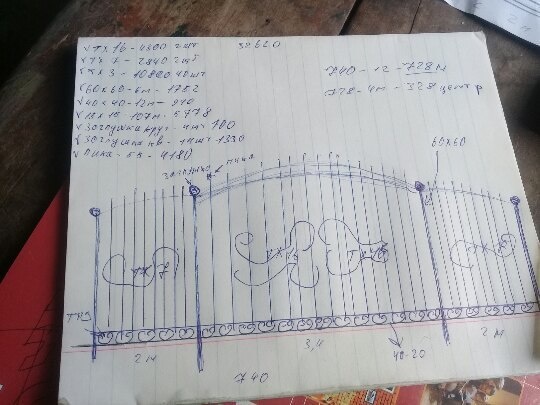 ТХ 16 - 4300 2 шт
ТХ 7 - 2840 2 шт
ТХ 3 - 10800 40 шт
60х60 - 6м - 1782
40х40 - 12м -
107м - 5778
Заглушка круг - 4 шт 100
Заглушка кв - 14шт 1330
Пика - 55 - 4180
32620
740 - 12 - 728 м
728 - 4м - 328 центр
60х60
заглушка
пика
ТХ 7
ТХ 16
ТХ 3
2 м
3,4
40-20
2 м
740